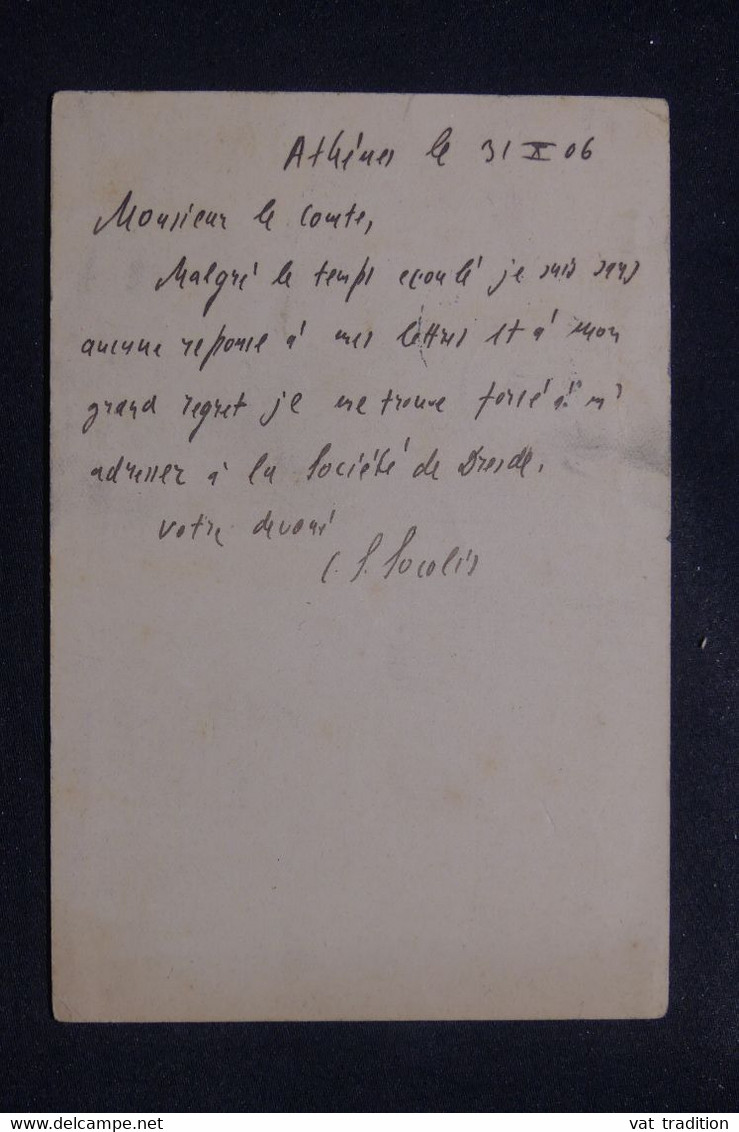 Athènes le 31 X 06
Monsieur le Comte,
Malgré le temps ecoulé je suis sans
aucune reponse à mes lettres et à mon
grand regret je me trouve forcé à m'
adresser à la Société de Dresde.
votre devoué
C. S. Socolis
vat tradition
www.delcampe.net